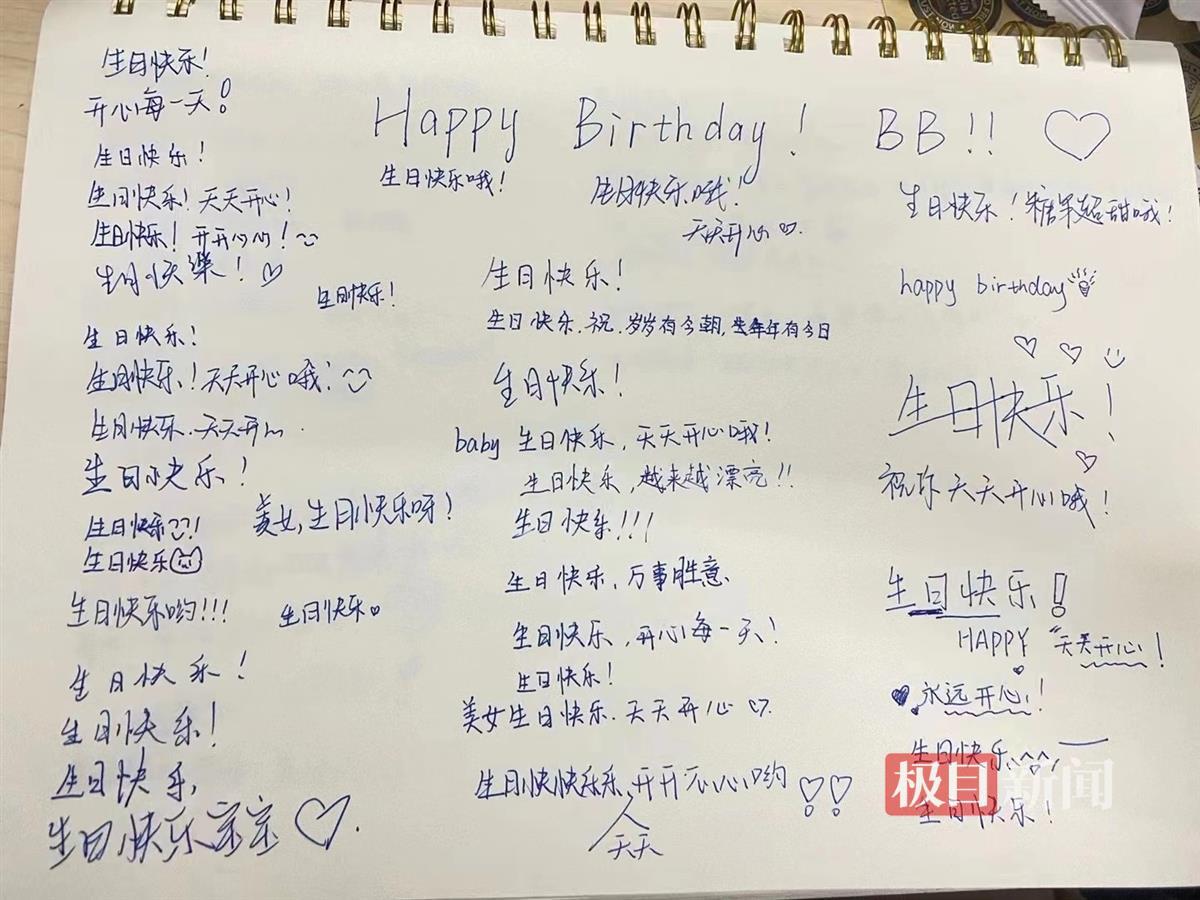 生日快乐!
开心每一天!
生日快乐!
生日快乐!天天开心!
生日快乐!开开心心!
生日快樂!♡
生日快乐!
生日快乐!
生日快乐!天天开心哦!
生日快乐.天天开心.
生日快乐!
生日快乐!
美女,生日快乐呀!
生日快乐
生日快乐哟!!!
生日快乐♥
生日快乐!
生日快乐!
生日快乐
生日快乐宝宝♡.
Happy Birthday! BB!! ♡
生日快乐哦!
生日快乐哦!
天天开心♡.
生日快乐!
生日快乐.祝.岁岁有今朝,年年有今日
生日快乐!
baby 生日快乐,天天开心哦!
生日快乐,越来越漂亮!!
生日快乐!!!
生日快乐,万事胜意.
生日快乐,开心每一天!
生日快乐!
美女生日快乐.天天开心♡.
生日快快乐乐,开开心心哟♡♡
天天
生日快乐!糖果超甜哦!
happy birthday
♡ ♡
生日快乐!
♡
祝你天天开心哦!
生日快乐!
HAPPY "天天开心!
♥永远开心!
生日快乐^^
极目新闻
生日快乐!